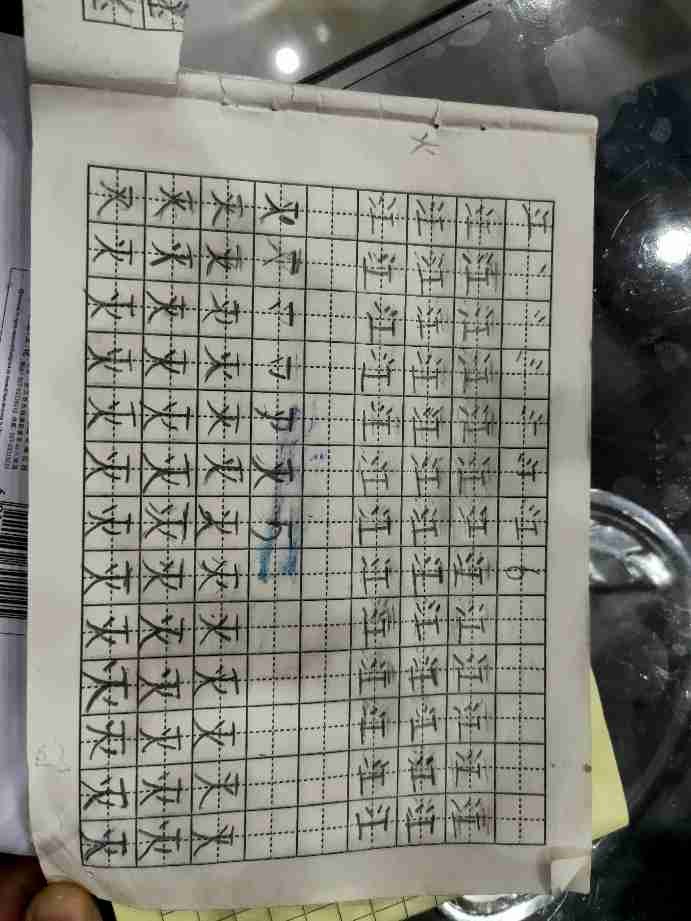 江 丶 冫 氵 江 6
江 江 江 江 江 江 江 江 江 江 江 江 江
火
江 江 江 江 江 江 江 江 江 江 江 江 江
江 江 江 江 江 江 江 江 江 江 江 江 江
灭 一 灭 5
灭 灭 灭 灭 灭 灭 灭 灭 灭 灭 灭 灭 灭
灭 灭 灭 灭 灭 灭 灭 灭 灭 灭 灭 灭 灭
灭 灭 灭 灭 灭 灭 灭 灭 灭 灭 灭 灭 灭